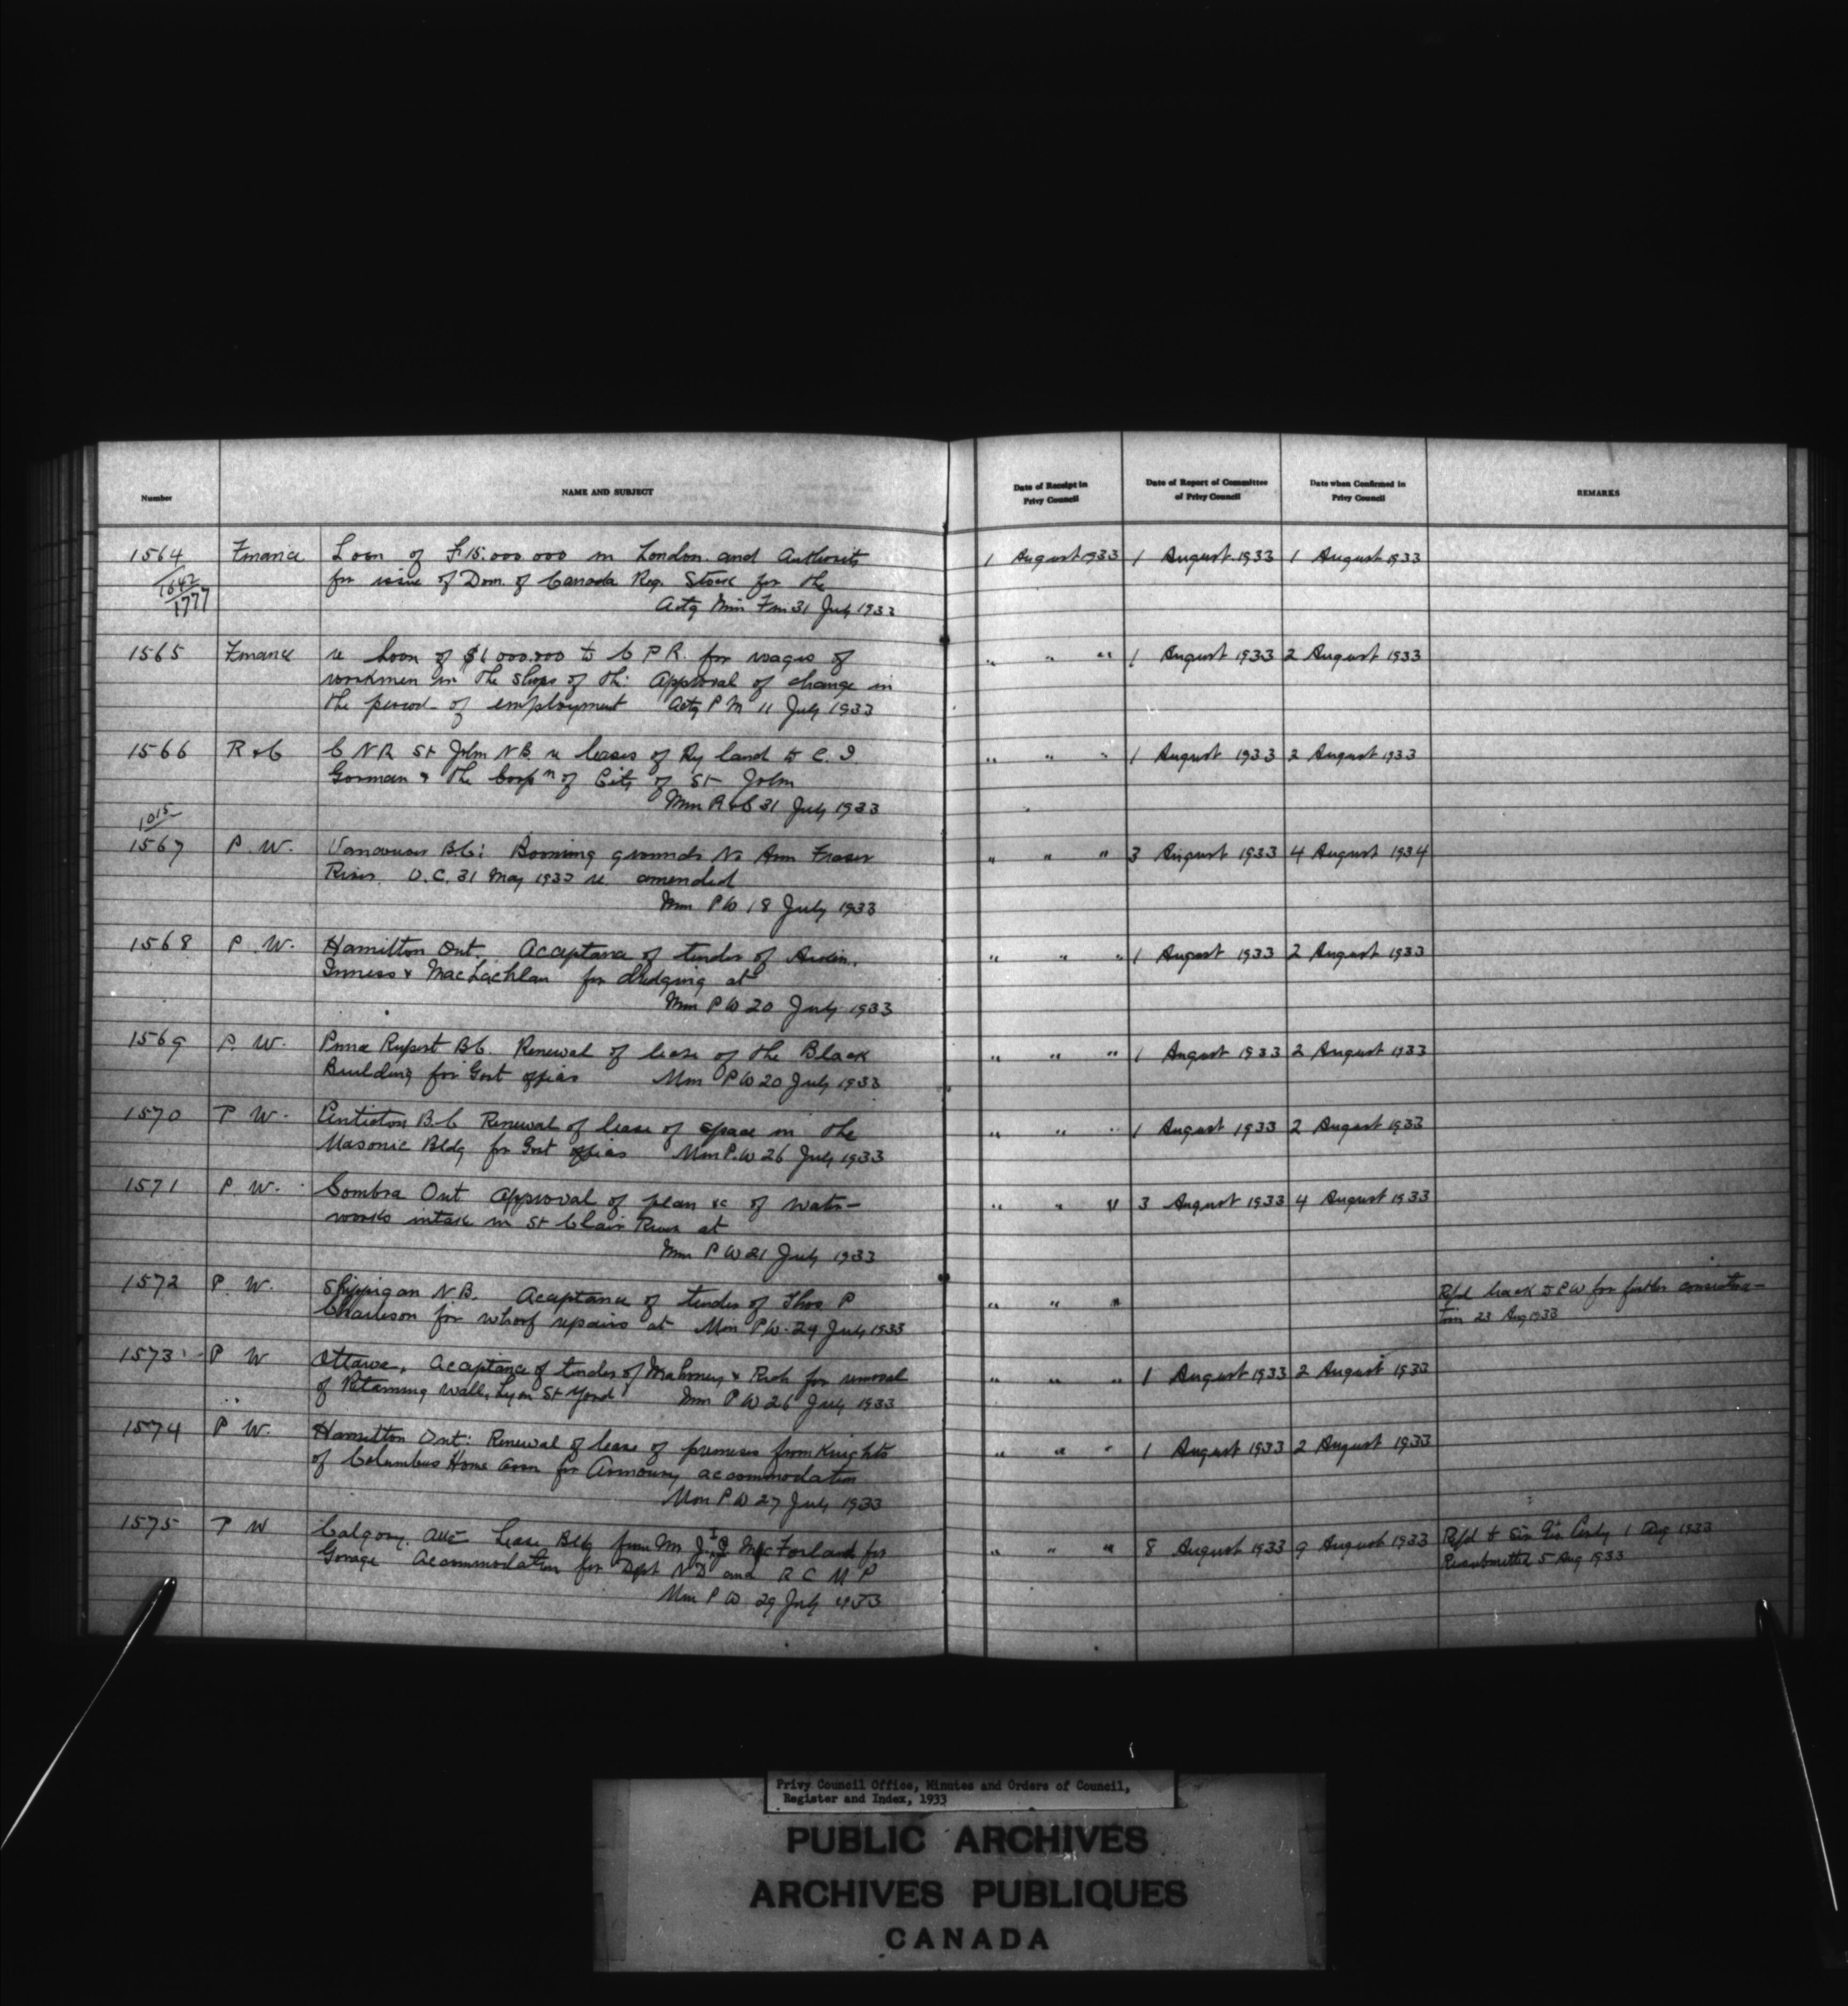 Number
NAME AND SUBJECT
Date of Receipt in
Privy Council
Date of Report of Committee
of Privy Council
Date when Confirmed in
Privy Council
REMARKS
1564 Finance Loan of £15.000.000 in London and Authority 1 August 1933 1 August 1933 1 August 1933
1642 for issue of Dom. of Canada Reg. Stock for the
1777 Actg Min Fin 31 July 1933
1565 Finance re Loan of $1000.000 to C P R. for wages of " " " 1 August 1933 2 August 1933
workmen in the shops of th: Approval of change in
the period of employment Actg P M 11 July 1933
1566 R & C C N R St John N B re leases of Ry land to C. I. " " " 1 August 1933 2 August 1933
Gorman & the Corpn of City of St John
Min R & C 31 July 1933
1015
1567 P. W. Vancouver B.C: Booming grounds No Arm Fraser " " " 3 August 1933 4 August 1934
River O.C. 31 May 1933 re amended
Min P W 18 July 1933
1568 P. W. Hamilton Ont. Acceptance of tender of " " " 1 August 1933 2 August 1933
Inness & MacLachlan for dredging at
Min P W 20 July 1933
1569 P. W. Prince Rupert B C. Renewal of lease of the Black " " " 1 August 1933 2 August 1933
Building for Govt offices Min P W 20 July 1933
1570 P W. Penticton B.C Renewal of lease of space in the " " " 1 August 1933 2 August 1933
Masonic Bldg for Govt offices Min P.W 26 July 1933
1571 P. W. Sombra Ont Approval of plan &c of water- " " " 3 August 1933 4 August 1933
works intake in St Clair River at
Min P W 21 July 1933
1572 P. W. Shippigan N B. Acceptance of tender of Thos P " " " Refd back to P W for further considera-
Charleson for wharf repairs at Min P W. 29 July 1933 tion 23 Aug 1933
1573 P W Ottawa. Acceptance of tender of Mahoney & Rich for removal " " " 1 August 1933 2 August 1933
of Retaining wall, Lyon St Yard Min P W 26 July 1933
1574 P W. Hamilton Ont: Renewal of lease of premises from Knights " " " 1 August 1933 2 August 1933
of Columbus Home Assn for Armoury accommodation
Min P W 27 July 1933
1575 P W Calgary. Alta Lease Bldg from Mr J. I. McFarland for " " " 8 August 1933 9 August 1933 Refd to Sir Geo. Perley 1 Aug 1933
Garage Accommodation for Dept N D and R C M P Resubmitted 5 Aug 1933
Min P W 29 July 1933
Privy Council Office, Minutes and Orders of Council,
Register and Index, 1933
PUBLIC ARCHIVES
ARCHIVES PUBLIQUES
CANADA